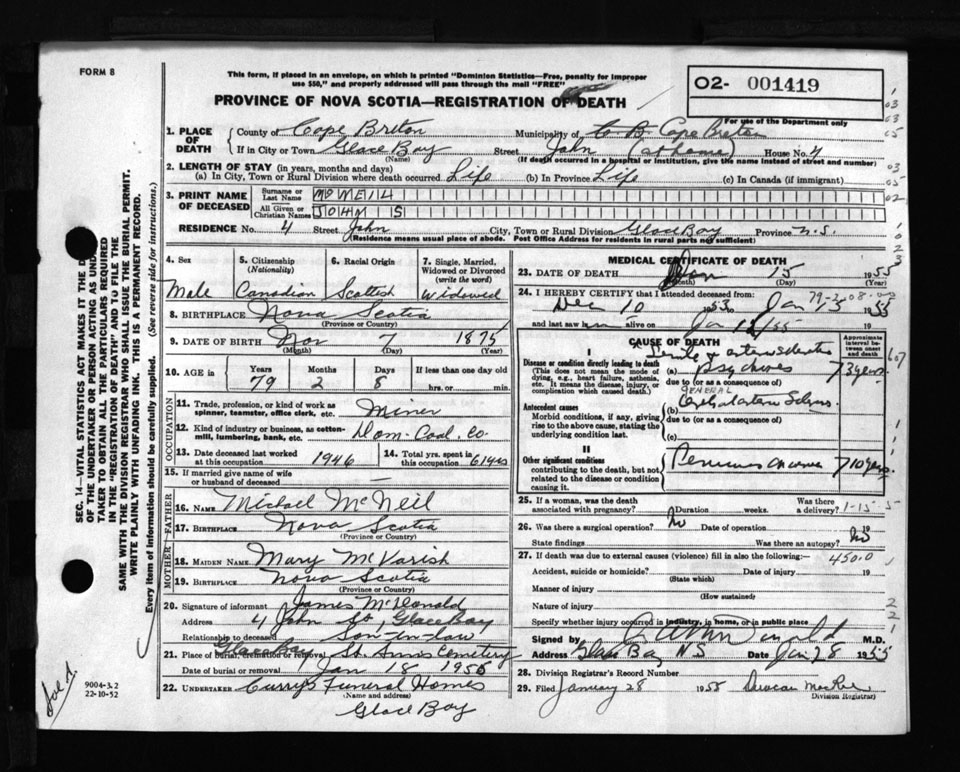 FORM 8
This form, if placed in an envelope, on which is printed "Dominion Statistics—Free, penalty for improper
use $50," and properly addressed will pass through the mail "FREE"
O2- 001419
For use of the Department only
PROVINCE OF NOVA SCOTIA—REGISTRATION OF DEATH
1. PLACE OF DEATH
County of Cape Breton Municipality of C. B. Cape Breton
If in City or Town Glace Bay Street John (at home) House No. 4
(Name) (If death occurred in a hospital or institution, give the name instead of street and number)
2. LENGTH OF STAY (in years, months and days)
(a) In City, Town or Rural Division where death occurred Life (b) In Province Life (c) In Canada (if immigrant)
3. PRINT NAME OF DECEASED
Surname or Last Name McNEIL
All Given or Christian Names JOHN S
RESIDENCE No. 4 Street John City, Town or Rural Division Glace Bay Province N.S.
(Residence means usual place of abode. Post Office Address for residents in rural parts not sufficient)
4. Sex
Male
5. Citizenship (Nationality)
Canadian
6. Racial Origin
Scottish
7. Single, Married, Widowed or Divorced (write the word)
Widowed
8. BIRTHPLACE Nova Scotia
(Province or Country)
9. DATE OF BIRTH Nov 7 1875
(Month) (Day) (Year)
10. AGE in Years Months Days If less than one day
79 2 8 hrs. or min.
OCCUPATION
11. Trade, profession, or kind of work as
spinner, teamster, office clerk, etc. Miner
12. Kind of industry or business, as cotton-
mill, lumbering, bank, etc. Dom. Coal. Co.
13. Date deceased last worked
at this occupation 1946
14. Total yrs. spent in
this occupation 61 yrs
15. If married give name of wife
or husband of deceased —
FATHER
16. Name Michael McNeil
17. Birthplace Nova Scotia
(Province or Country)
MOTHER
18. MAIDEN NAME Mary McVarish
19. BIRTHPLACE Nova Scotia
(Province or Country)
20. Signature of informant James McDonald
Address 4 John St, Glace Bay
Relationship to deceased Son-in-law
21. Place of burial, cremation or removal Glace Bay St. Anns Cemetery
Date of burial or removal Jan 18 1955
22. UNDERTAKER Curry's Funeral Homes
(Name and address)
Glace Bay
MEDICAL CERTIFICATE OF DEATH
23. DATE OF DEATH Jan 15 1955
(Month) (Day) (Year)
24. I HEREBY CERTIFY that I attended deceased from
Dec 10 1953 Jan 1955
and last saw him alive on Jan 15/55
CAUSE OF DEATH
Approximate interval between onset and death
I
Disease or condition directly leading to death
(This does not mean the mode of
dying, e.g., heart failure, asthenia,
etc. It means the disease, injury, or
complication which caused death.)
(a) Senile & arteriosclerotic
psychoses 73 years
due to (or as a consequence of)
Antecedent causes
Morbid conditions, if any, giving
rise to the above cause, stating the
underlying condition last.
GENERAL
(b)
due to (or as a consequence of)
(c)
II
Other significant conditions
contributing to the death, but not
related to the disease or condition
causing it.
Pernicious anaemia 710 yrs.
25. If a woman, was the death
associated with pregnancy? Duration weeks. Was there
a delivery?
26. Was there a surgical operation? No Date of operation 19
State findings Was there an autopsy? No
27. If death was due to external causes (violence) fill in also the following:— 450.0
Accident, suicide or homicide? Date of injury 19
(State which)
Manner of injury
(How sustained)
Nature of injury
Specify whether injury occurred in industry, in home, or in public place
Signed by M.D.
Address Glace Bay N S Date Jan 28 1955
28. Division Registrar's Record Number
29. Filed January 28 1955 Duncan MacRae
(Division Registrar)
SEC. 14—VITAL STATISTICS ACT MAKES IT THE D
OF THE UNDERTAKER OR PERSON ACTING AS UND
TAKER TO OBTAIN ALL THE PARTICULARS REQUIRED
IN THE "REGISTRATION OF DEATH" AND TO FILE THE
SAME WITH THE DIVISION REGISTRAR WHO SHALL ISSUE THE BURIAL PERMIT.
WRITE PLAINLY WITH UNFADING INK. THIS IS A PERMANENT RECORD.
Every item of information should be carefully supplied. (See reverse side for instructions.)
9004-3.2
22-10-52